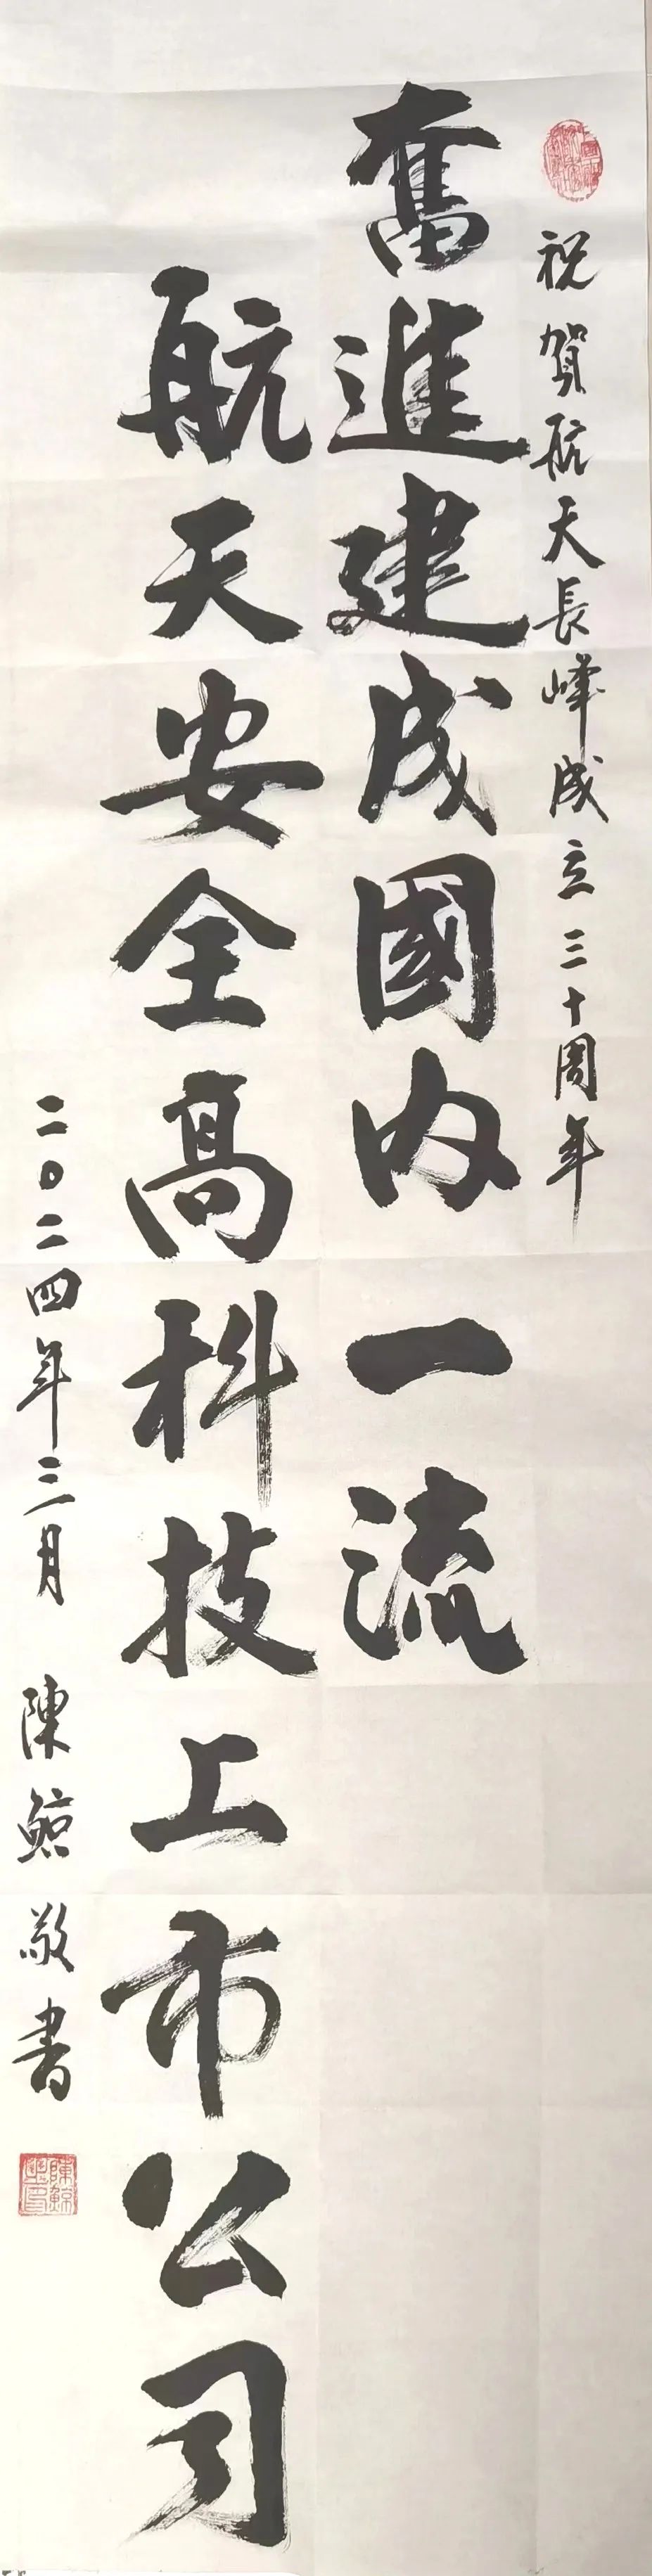 祝贺航天長峰成立三十周年
奮進建成國内一流
航天安全高科技上市公司
二〇二四年三月 陳鯨敬書